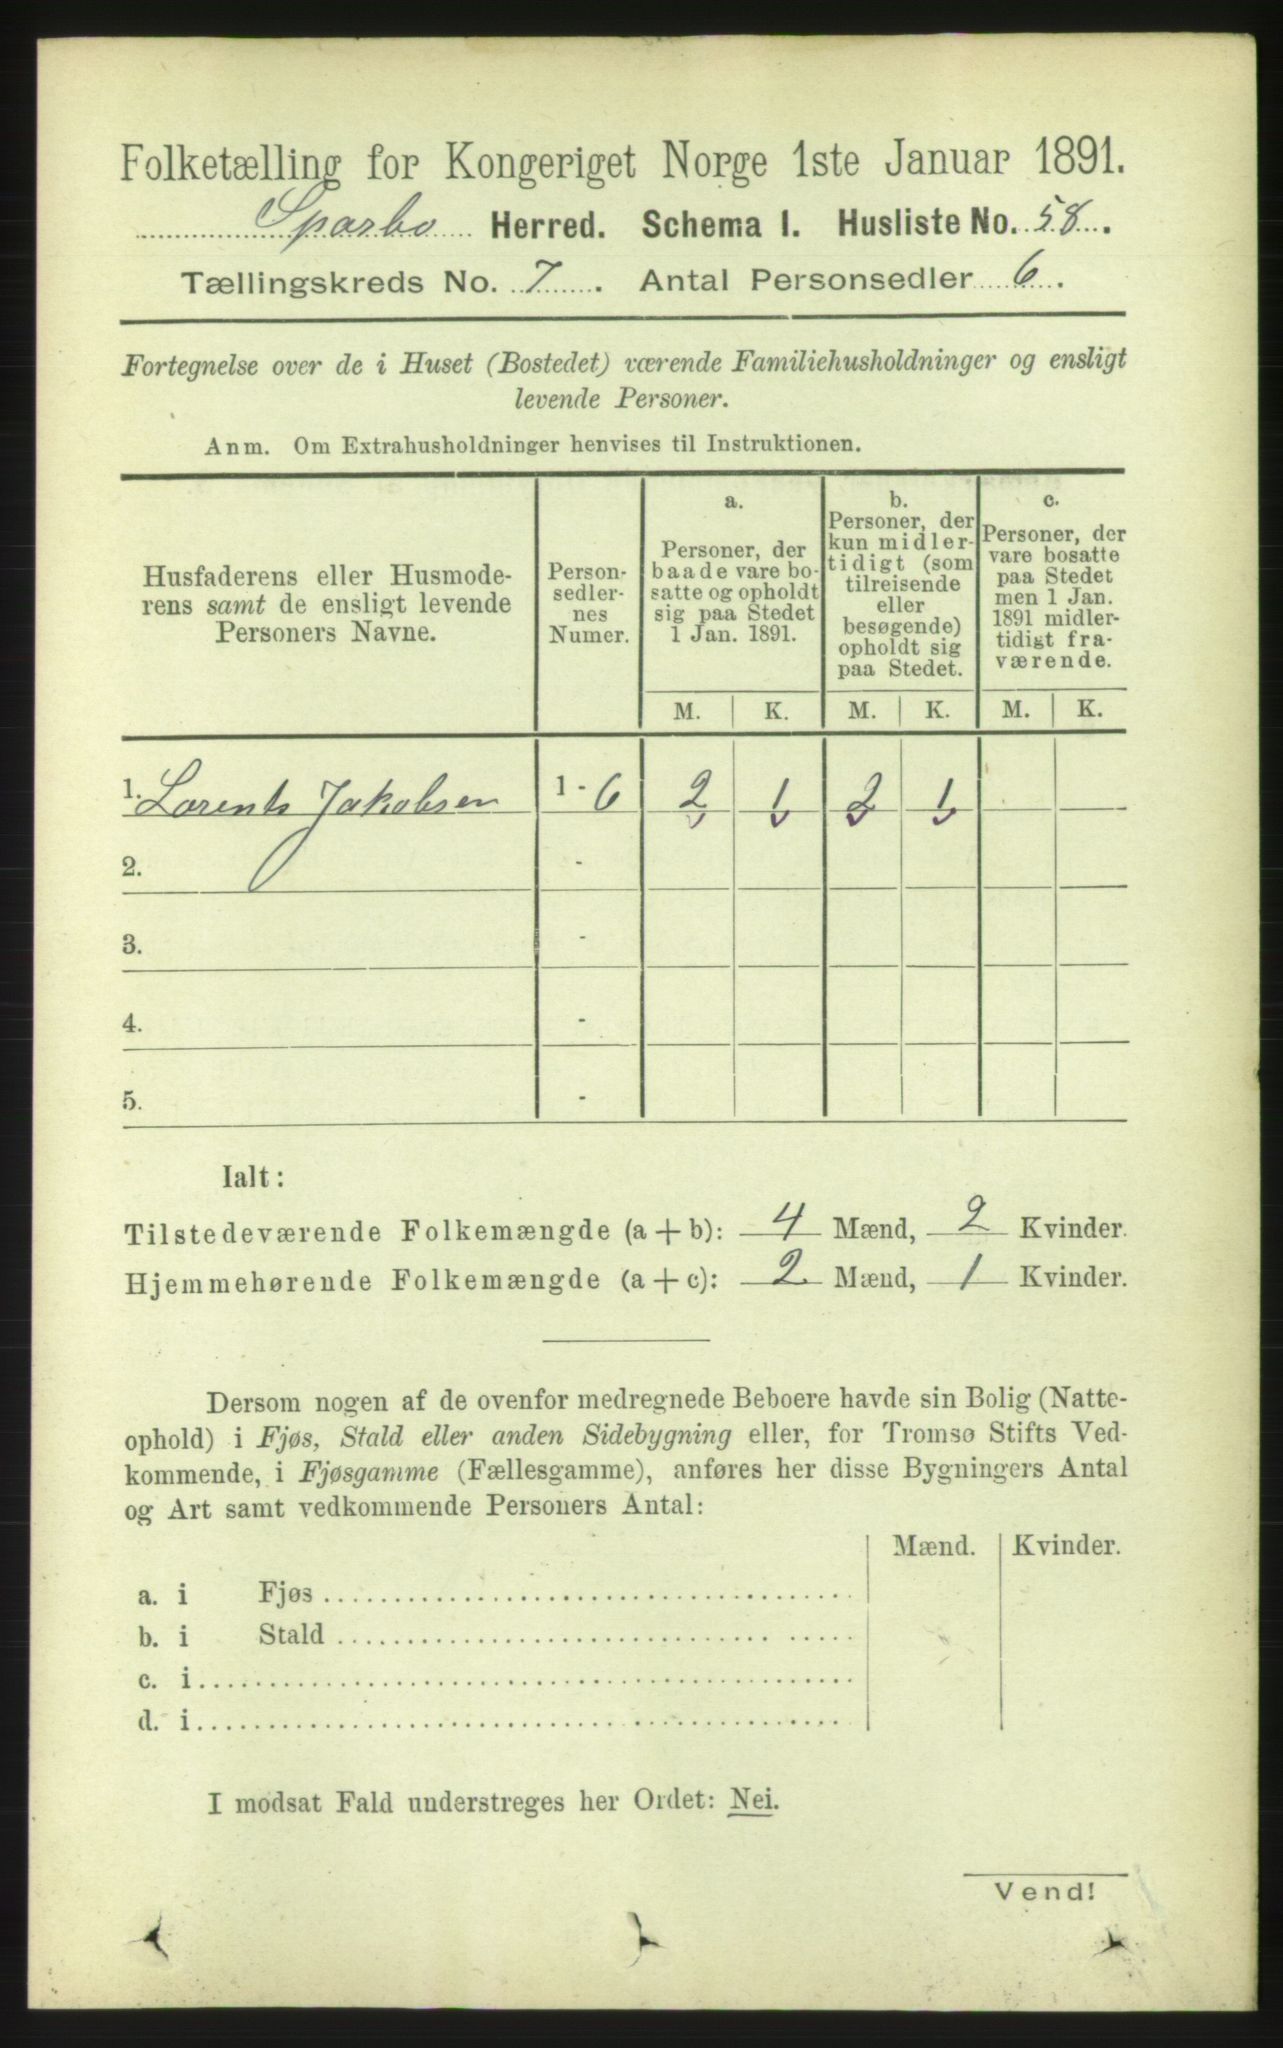 Folketælling for Kongeriget Norge 1ste Januar 1891.
Sparbo Herred. Schema I. Husliste No. 58.
Tællingskreds No. 7. Antal Personsedler 6.
Fortegnelse over de i Huset (Bostedet) værende Familiehusholdninger og ensligt
levende Personer.
Anm. Om Extrahusholdninger henvises til Instruktionen.
Husfaderens eller Husmode-
rens samt de ensligt levende
Personers Navne.
Person-
sedler-
nes
Numer.
a.
Personer, der
baade vare bo-
satte og opholdt
sig paa Stedet
1 Jan. 1891.
b.
Personer, der
kun midler-
tidigt (som
tilreisende
eller
besøgende)
opholdt sig
paa Stedet.
c.
Personer, der
vare bosatte
paa Stedet
men 1 Jan.
1891 midler-
tidigt fra-
værende.
M. K. M. K. M. K.
1. Lorents Jakobsen 1 - 6 2 1 2 1
2. -
3. -
4. -
5. -
Ialt:
Tilstedeværende Folkemængde (a + b): 4 Mænd, 2 Kvinder.
Hjemmehørende Folkemængde (a + c): 2 Mænd, 1 Kvinder.
Dersom nogen af de ovenfor medregnede Beboere havde sin Bolig (Natte-
ophold) i Fjøs, Stald eller anden Sidebygning eller, for Tromsø Stifts Ved-
kommende, i Fjøsgamme (Fællesgamme), anføres her disse Bygningers Antal
og Art samt vedkommende Personers Antal:
Mænd. Kvinder.
a. i Fjøs
b. i Stald
c. i
d. i
I modsat Fald understreges her Ordet: Nei.
Vend!